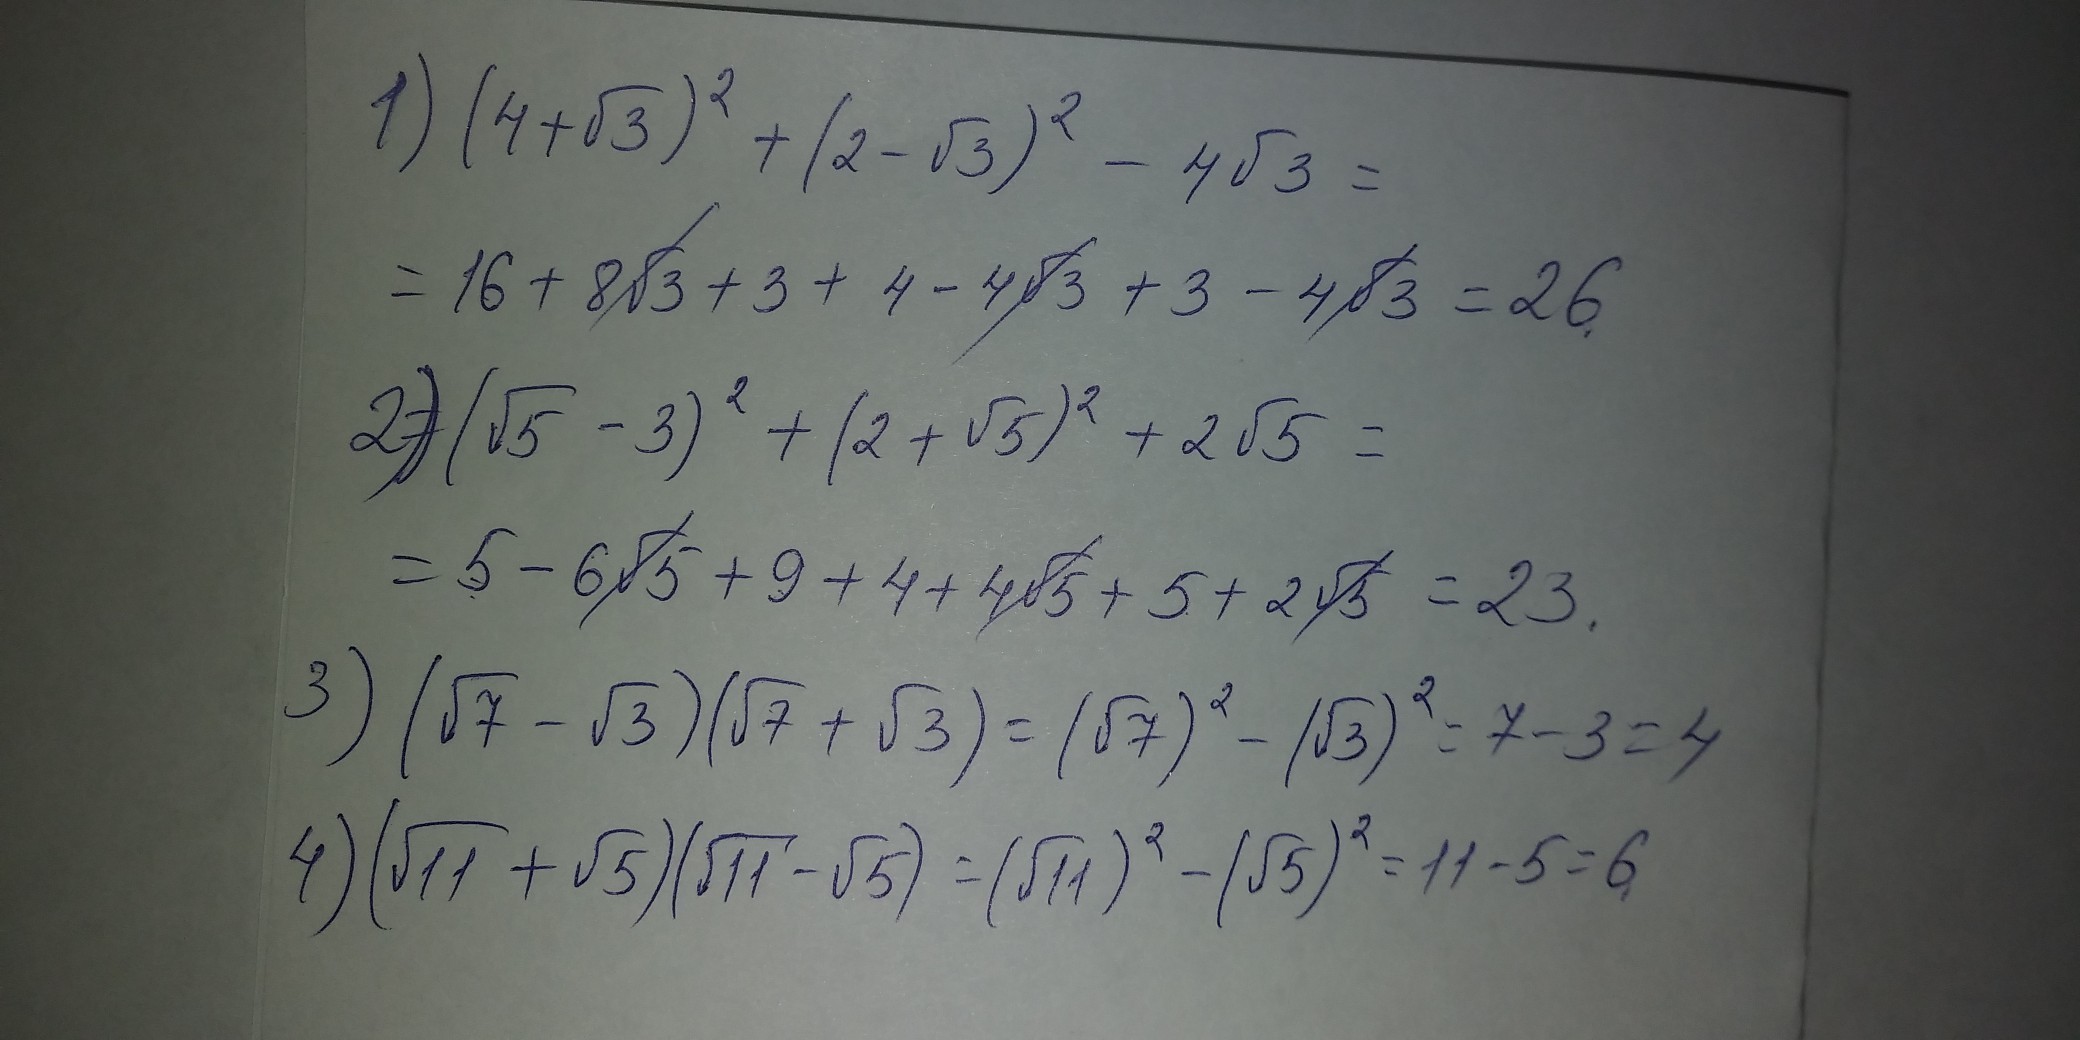 1) (4+√3)² + (2-√3)² - 4√3 =
= 16 + 8√3 + 3 + 4 - 4√3 + 3 - 4√3 = 26.
2) (√5 - 3)² + (2 + √5)² + 2√5 =
= 5 - 6√5 + 9 + 4 + 4√5 + 5 + 2√5 = 23.
3) (√7 - √3)(√7 + √3) = (√7)² - (√3)² = 7 - 3 = 4
4) (√11 + √5)(√11 - √5) = (√11)² - (√5)² = 11 - 5 = 6.